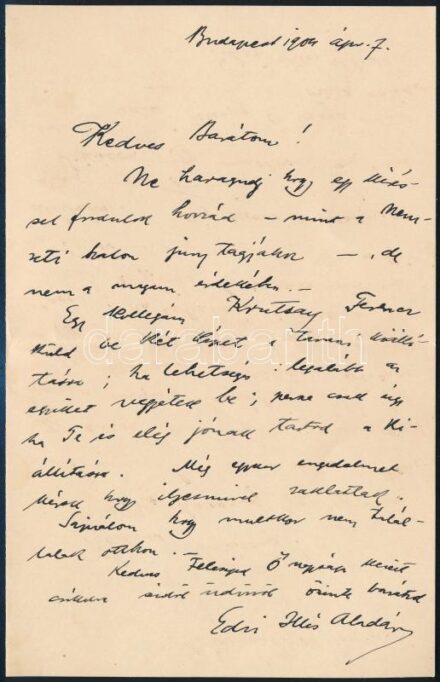 Budapest 1904 ápr. 7.
Kedves Barátom!
Ne haragudj hogy egy kérés-
sel fordulok hozzád – mint a Nem-
zeti Szalon jury tagjához –, de
nem a magam érdekében. –
Egy kollegám Krutsay Ferenc
küld be két képet a tavaszi kiállí-
tásra; ha lehetséges legalább az
egyiket vegyétek be; persze csak úgy
ha Te is elég jónak tartod a ki-
állításra. Még egyszer engedelmet
kérek hogy ilyesmivel zaklatlak.
Sajnálom hogy multkor nem talál-
talak otthon. –
Kedves Ő nagysága kezeit
csókolva őszinte barátod
Edvi Illés Aladár
darabanth